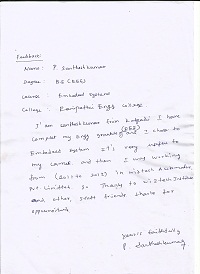 Feedback:
Name: P. Santhoshkumar
Degree: BE (EEE)
Course: Embedded System
College: Ranipettai Engg College.
I am Santhoshkumar from Kalpakk I have
complet my Engg graduate (EEE) and I chose to
Embedded System it's very useful to
my career. and then I was working
from (2011 to 2013) in Wiztech Automation
Pvt. Limited. So Thanks to Wiztech Institute
and other, staff friends thanks for
opportunities.
Yours faithfully
P. Santhoshkumar